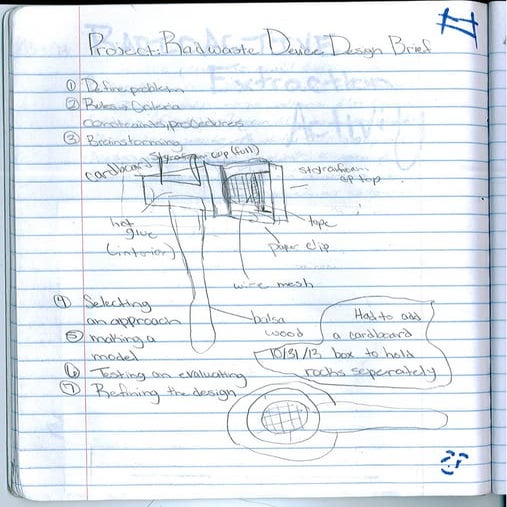 Project: Radwaste Device Design Brief
① Define problem
② Rules, Criteria
constraints, procedures
③ Brainstorming
cardboard
styrofoam cup (full)
styrofoam
cup top
hot
glue
(interior)
tape
paper clip
wire mesh
④ Selecting
an approach
⑤ making a
model
⑥ Testing an evaluating
⑦ Refining the design
balsa
wood
Had to add
a cardboard
10/31/13 box to hold
rocks seperately
Extraction
Activity